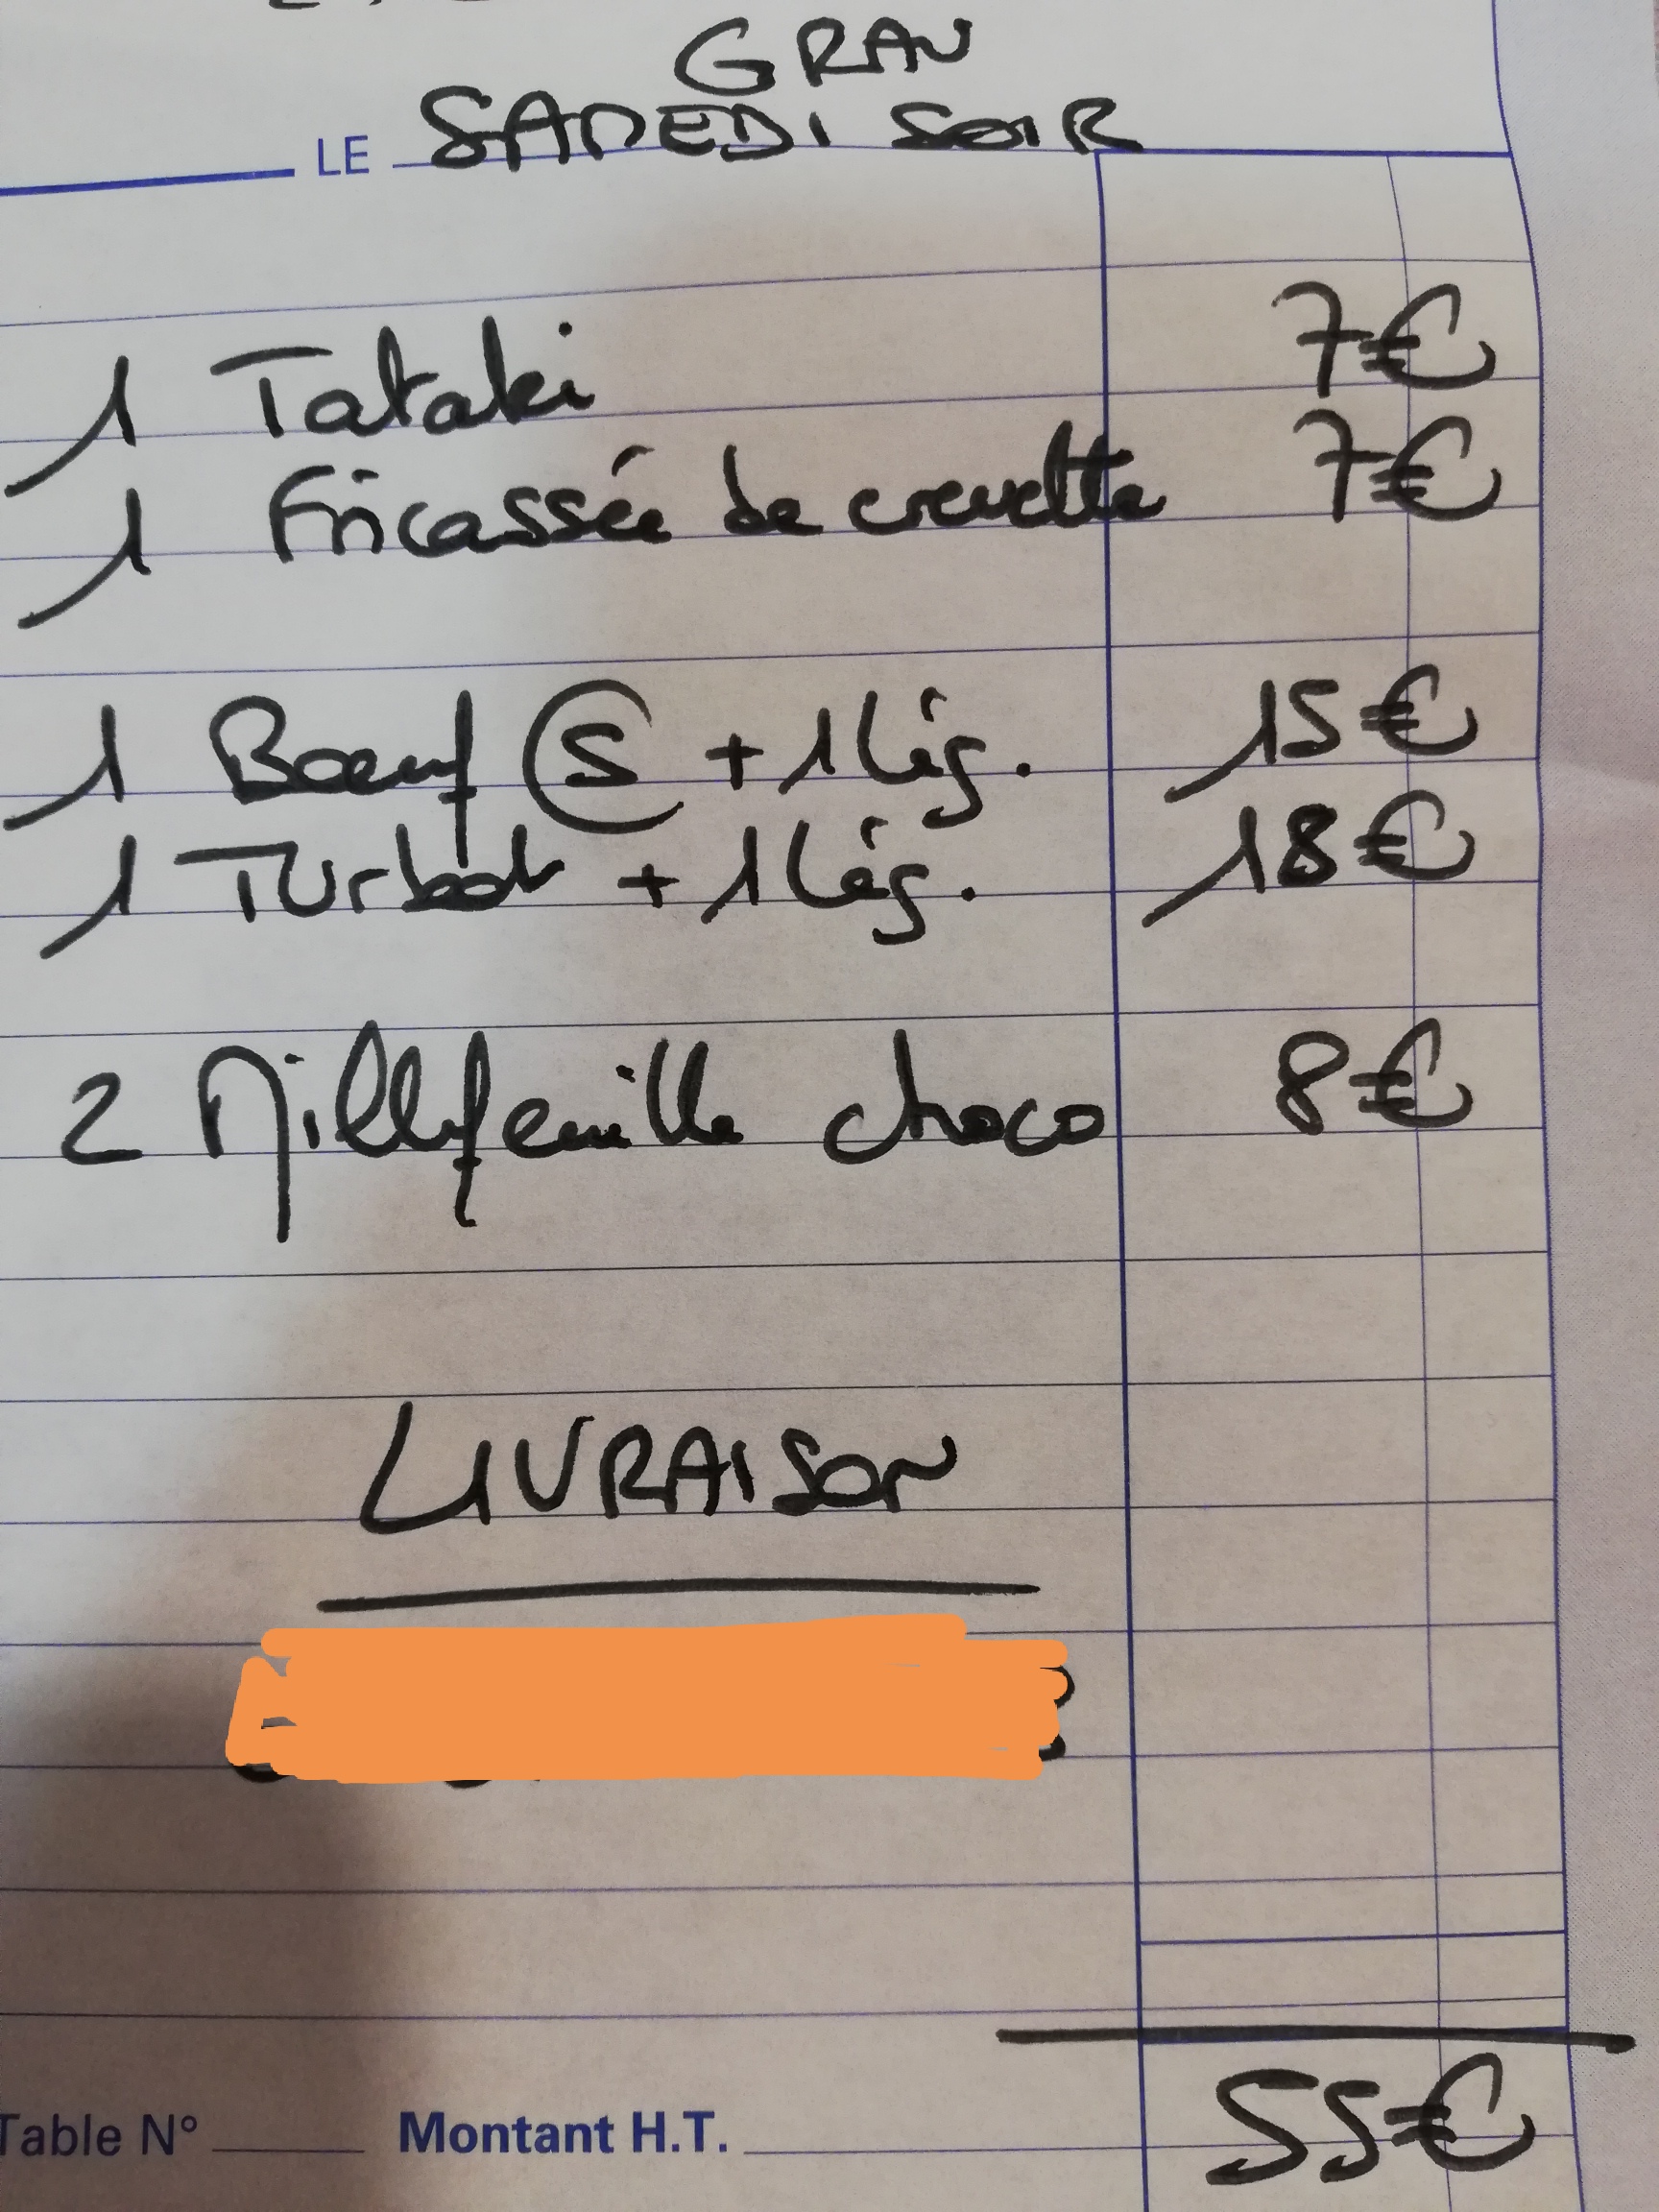 GRAU
LE SAMEDI SOIR
1 Tataki 7€
1 Fricassée de crevette 7€
1 Boeuf S + 1 lég. 15€
1 Turbot + 1 lég. 18€
2 Millefeuille choco 8€
LIVRAISON
Table N° Montant H.T. 55€